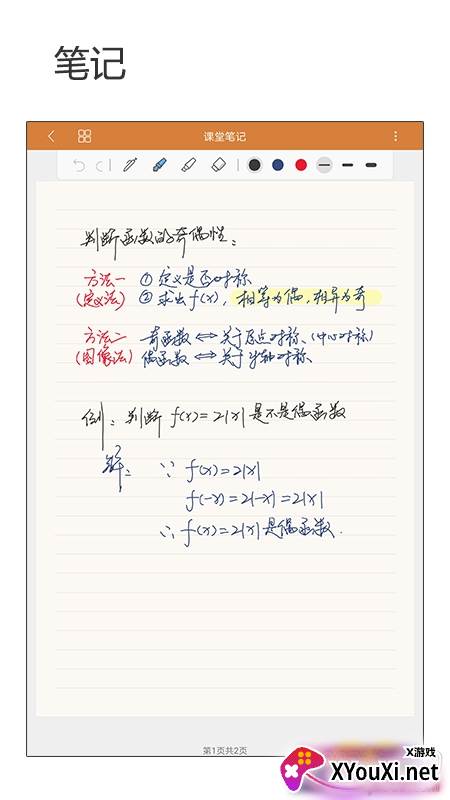 笔记
课堂笔记
判断函数的奇偶性:
方法一 ① 定义是否对称
(定义法) ② 求出 f(x), 相等为偶,相异为奇
方法二 奇函数 ⟺ 关于原点对称、(中心对称)
(图像法) 偶函数 ⟺ 关于y轴对称
例: 判断 f(x)=2|x| 是不是偶函数
解: ∵ f(x)=2|x|
f(-x)=2|-x|=2|x|
∴ f(x)=2|x| 是偶函数.
第1页共2页
X游戏
XYouXi.net